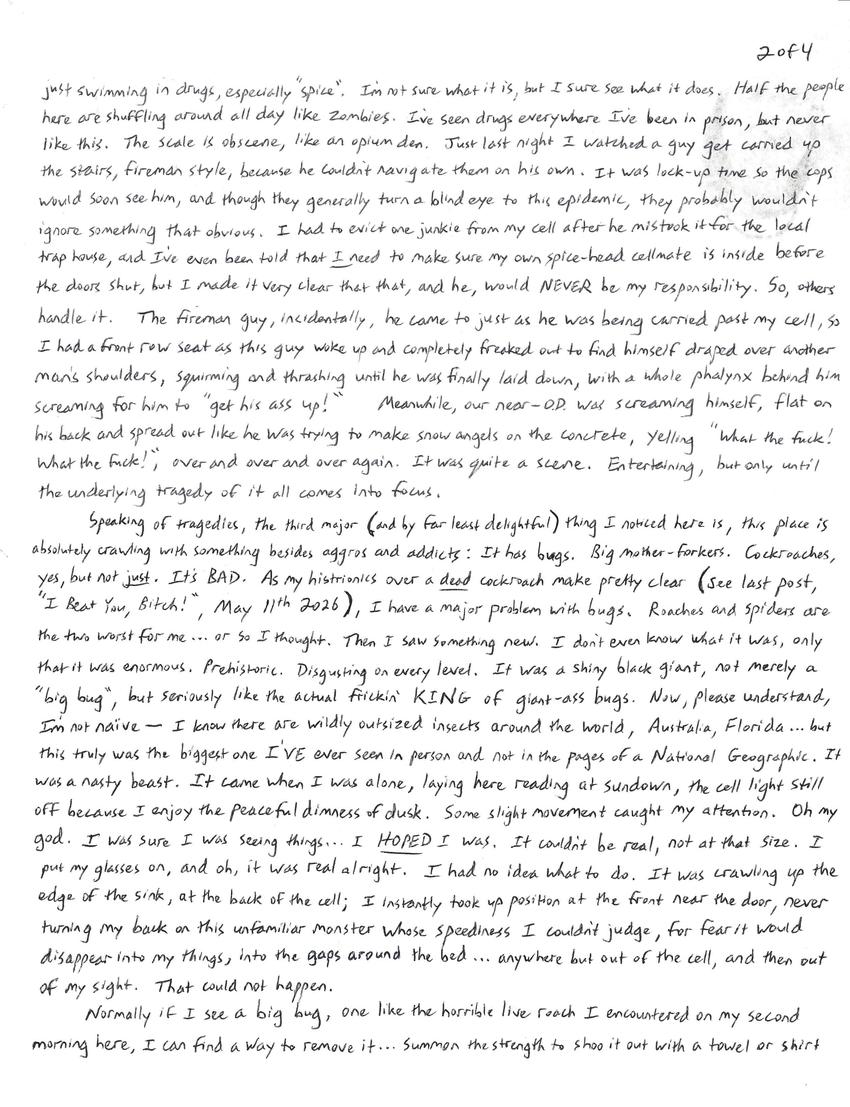 2 of 4
just swimming in drugs, especially "spice". I'm not sure what it is, but I sure see what it does. Half the people
here are shuffling around all day like zombies. I've seen drugs everywhere I've been in prison, but never
like this. The scale is obscene, like an opium den. Just last night I watched a guy get carried up
the stairs, fireman style, because he couldn't navigate them on his own. It was lock-up time so the cops
would soon see him, and though they generally turn a blind eye to this epidemic, they probably wouldn't
ignore something that obvious. I had to evict one junkie from my cell after he mistook it for the local
trap house, and I've even been told that I need to make sure my own spice-head cellmate is inside before
the doors shut, but I made it very clear that that, and he, would NEVER be my responsibility. So, others
handle it. The fireman guy, incidentally, he came to just as he was being carried past my cell, so
I had a front row seat as this guy woke up and completely freaked out to find himself draped over another
man's shoulders, squirming and thrashing until he was finally laid down, with a whole phalynx behind him
screaming for him to "get his ass up!" Meanwhile, our near-O.D. was screaming himself, flat on
his back and spread out like he was trying to make snow angels on the concrete, yelling "What the fuck!
What the fuck!", over and over and over again. It was quite a scene. Entertaining, but only until
the underlying tragedy of it all comes into focus.
Speaking of tragedies, the third major (and by far least delightful) thing I noticed here is, this place is
absolutely crawling with something besides aggros and addicts: It has bugs. Big mother-forkers. Cockroaches,
yes, but not just. It's BAD. As my histrionics over a dead cockroach make pretty clear (see last post,
"I Beat You, Bitch!", May 11th 2026), I have a major problem with bugs. Roaches and spiders are
the two worst for me... or so I thought. Then I saw something new. I don't even know what it was, only
that it was enormous. Prehistoric. Disgusting on every level. It was a shiny black giant, not merely a
"big bug", but seriously like the actual frickin' KING of giant-ass bugs. Now, please understand,
I'm not naïve — I know there are wildly outsized insects around the world, Australia, Florida... but
this truly was the biggest one I'VE ever seen in person and not in the pages of a National Geographic. It
was a nasty beast. It came when I was alone, laying here reading at sundown, the cell light still
off because I enjoy the peaceful dimness of dusk. Some slight movement caught my attention. Oh my
god. I was sure I was seeing things... I HOPED I was. It couldn't be real, not at that size. I
put my glasses on, and oh, it was real alright. I had no idea what to do. It was crawling up the
edge of the sink, at the back of the cell; I instantly took up position at the front near the door, never
turning my back on this unfamiliar monster whose speediness I couldn't judge, for fear it would
disappear into my things, into the gaps around the bed... anywhere but out of the cell, and then out
of my sight. That could not happen.
Normally if I see a big bug, one like the horrible live roach I encountered on my second
morning here, I can find a way to remove it... summon the strength to shoo it out with a towel or shirt